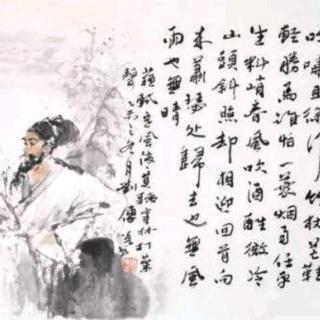 吟嘯且徐行竹杖芒鞋
輕勝馬誰怕一蓑烟雨任平
生料峭春風吹酒醒微冷
山頭斜照却相迎回首向
来蕭瑟处歸去也無風
雨也無晴
蘇軾定風波莫聽穿林打葉
聲